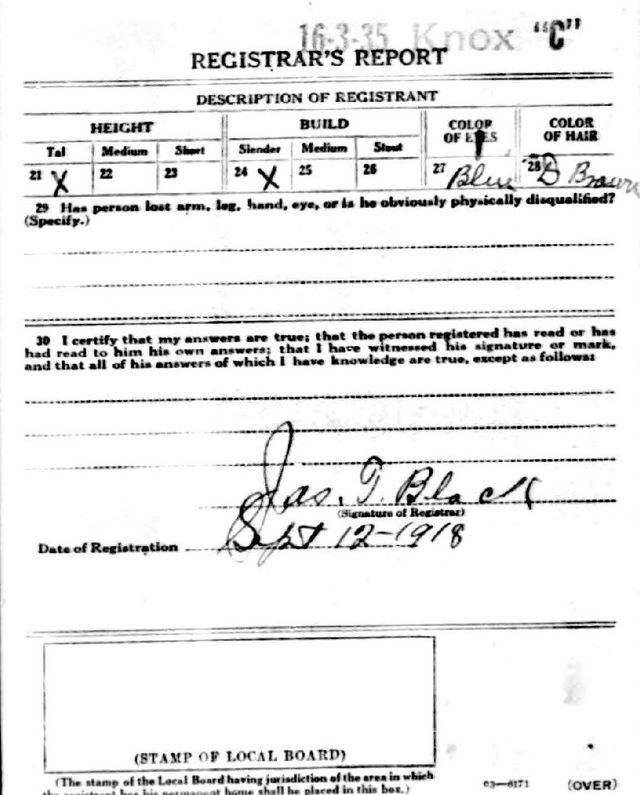 16-3-35 Knox "C"
REGISTRAR'S REPORT
DESCRIPTION OF REGISTRANT
HEIGHT BUILD COLOR OF EYES COLOR OF HAIR
Tal Medium Short Slender Medium Stout
21 X 22 23 24 X 25 26 27 Blue 28 D Brown
29 Has person lost arm, leg, hand, eye, or is he obviously physically disqualified?
(Specify.)
30 I certify that my answers are true; that the person registered has read or has
had read to him his own answers; that I have witnessed his signature or mark,
and that all of his answers of which I have knowledge are true, except as follows:
Jas. T. Black
(Signature of Registrar)
Date of Registration Sept 12-1918
(STAMP OF LOCAL BOARD)
(The stamp of the Local Board having jurisdiction of the area in which
the registrant has his permanent home shall be placed in this box.)
63-6171 (OVER)